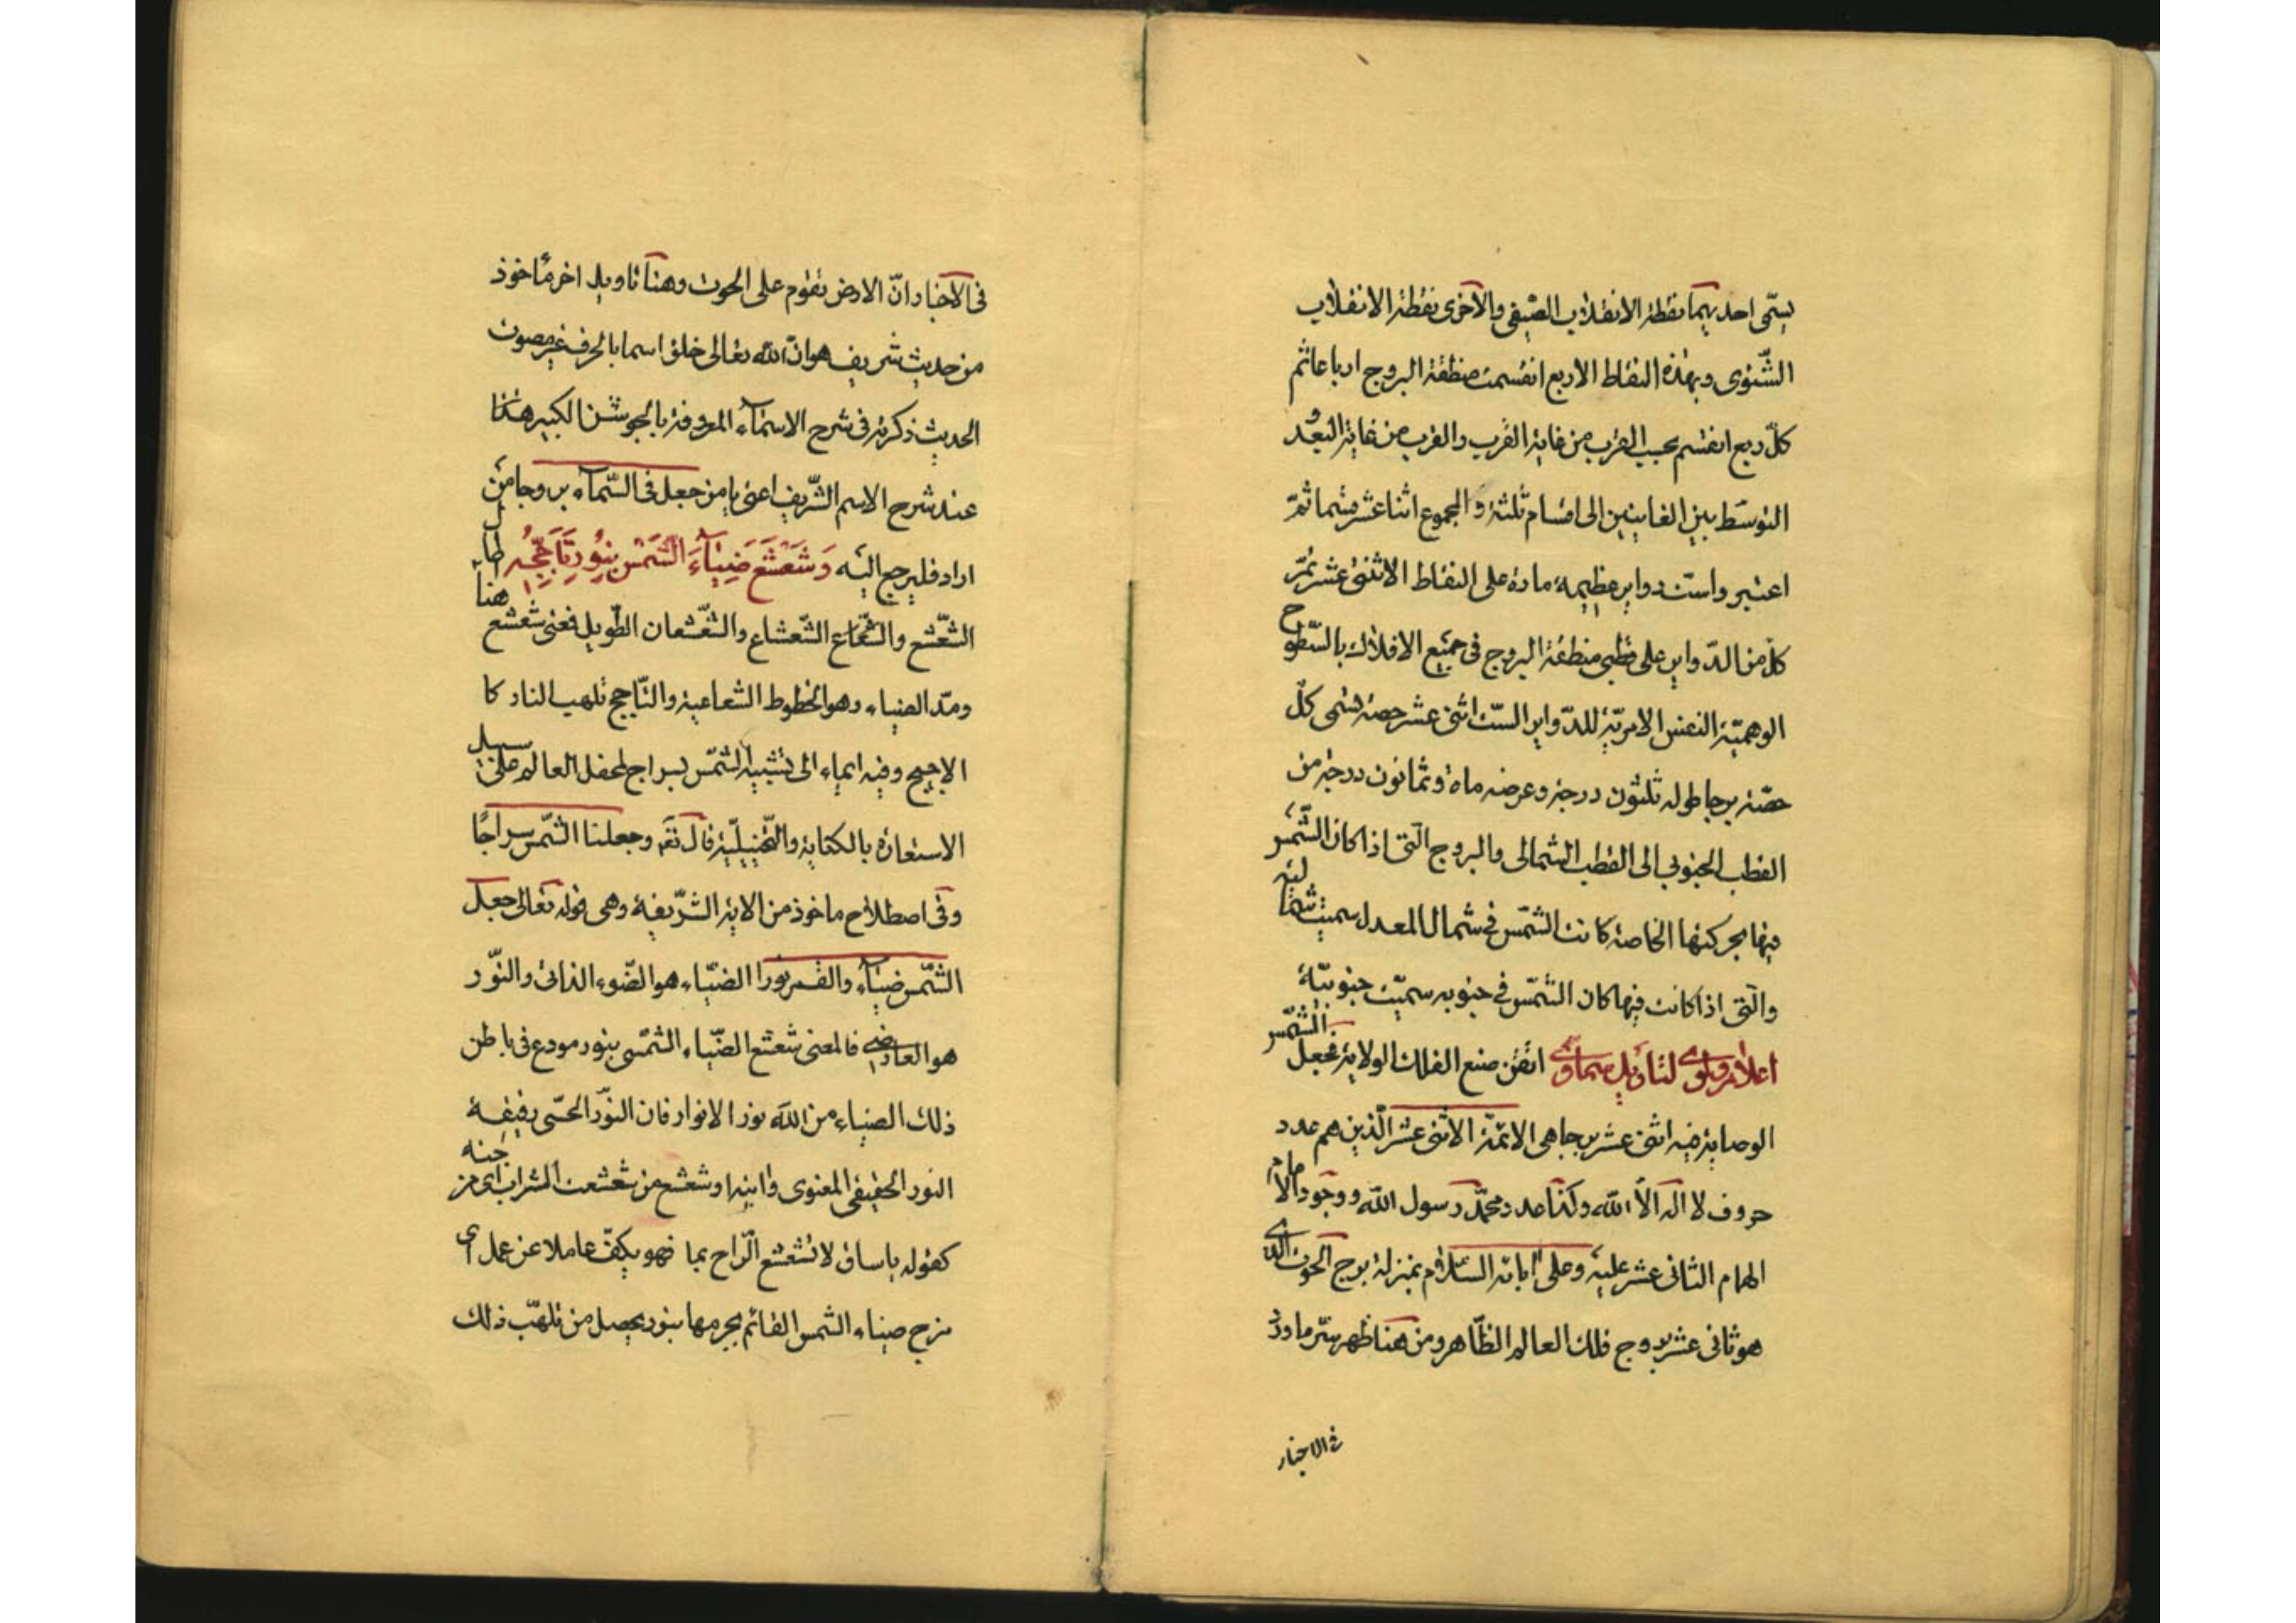 يسمّى احديهما نقطة الانقلاب الصّيفى والاخرى نقطة الانقلاب
الشّتوى وبهذه النقاط الاربع انقسمت منطقة البروج ارباعا ثم
كلّ ربع انقسم بحسب القرب من غاية القرب والقرب من غاية البعد و
التوسّط بين الغايتين الى اقسام ثلثة والمجموع اثنا عشر قسما ثمّ
اعتبر واستّ دواير عظيمة مارة على النقاط الاثنى عشر تمرّ
كلّ من الدّواير على قطبى منطقة البروج فى جميع الافلاك بالسّطوح
الوهميّة النفس الامريّة للدّواير السّت اثنى عشر حصّة فسمى كلّ
حصّة برجا طوله ثلثون درجة وعرضه ماة وثمانون درجة من
القطب الجنوبى الى القطب الشمالى والبروج الّتى اذا كان الشّمس
فيها بحركتها الخاصة كانت الشّمس فى شمال المعدل سميت شماليّة
والّتى اذا كانت فيها كان الشّمس فى جنوبه سميّت جنوبيّة
اعلام ولوى لتاويل سماوى اتقن صنع الفلك الولاية بجعل الشّمس
الوصاية فيه اثنى عشر برجا هى الائمّة الاثنى عشر الّذين هم عدد
حروف لا اله الّا الله وكذا عدد محمّد رسول الله ووجود الامام
الهمام الثانى عشر عليه وعلى ابائه السّلام بمنزلة برج الحوت الذى
هو ثانى عشر بروج فلك العالم الظّاهر ومن هنا ظهر سرّ ما ورد
فى الاخبار
فى الاخبار انّ الارض تقوم على الحوت وهنا تاويل اخر ماخوذ
من حديث شريف هو انّ الله تعالى خلق اسما بالحرف غير مصوت
الحديث ذكرته فى شرح الاسماء المعروفة بالجوشن الكبير هذا
عند شرح الاسم الشّريف اعنى يا من جعل فى السّماء بروجا من
اراد فليرجع اليه وَشَعْشَعَ ضِيٰاءَ الشَّمْسِ بِنُورِ تَأَجُّجِهِ هنا
الشّعشع والشّعاع الشّعشاع والشّعشعان الطّويل فمعنى شعشع
ومدّ الضياء وهو الخطوط الشعاعية والتّاجج تلهب النار كا
الاجيج وفيه ايماء الى تشبيه الشّمس بسراج لمحفل العالم على سبيل
الاستعارة بالكناية والتّخييليّة قال تع وجعلنا الشّمس سراجًا
وفى اصطلاح ماخوذ من الاية الشّريفة وهى قوله تعالى جعل
الشّمس ضياء والقمر نورا الضيّاء هو الضّوء الذاتى والنّور
هو العارضى فالمعنى شعشع الضّياء الشّمسى بنور مودع فى باطن
ذلك الضياء من الله نور الانوار فان النّور الحسّى رقيقة
النور الحقيقى المعنوى وايته او شعشع من شعشعت الشراب اى مزجته
كقوله يا ساق لا تشعشع الّراح بما فهو يكفّ عاملا عن عمل اى
مزج ضياء الشمس القائم بجرمها بنور يحصل من تلهّب ذلك